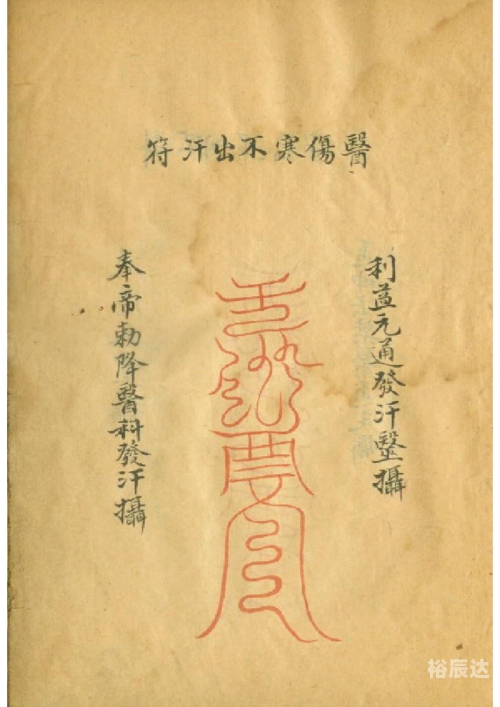 醫傷寒不出汗符
利益元通發汗毉攝
奉帝勅降醫科發汗攝
裕辰达